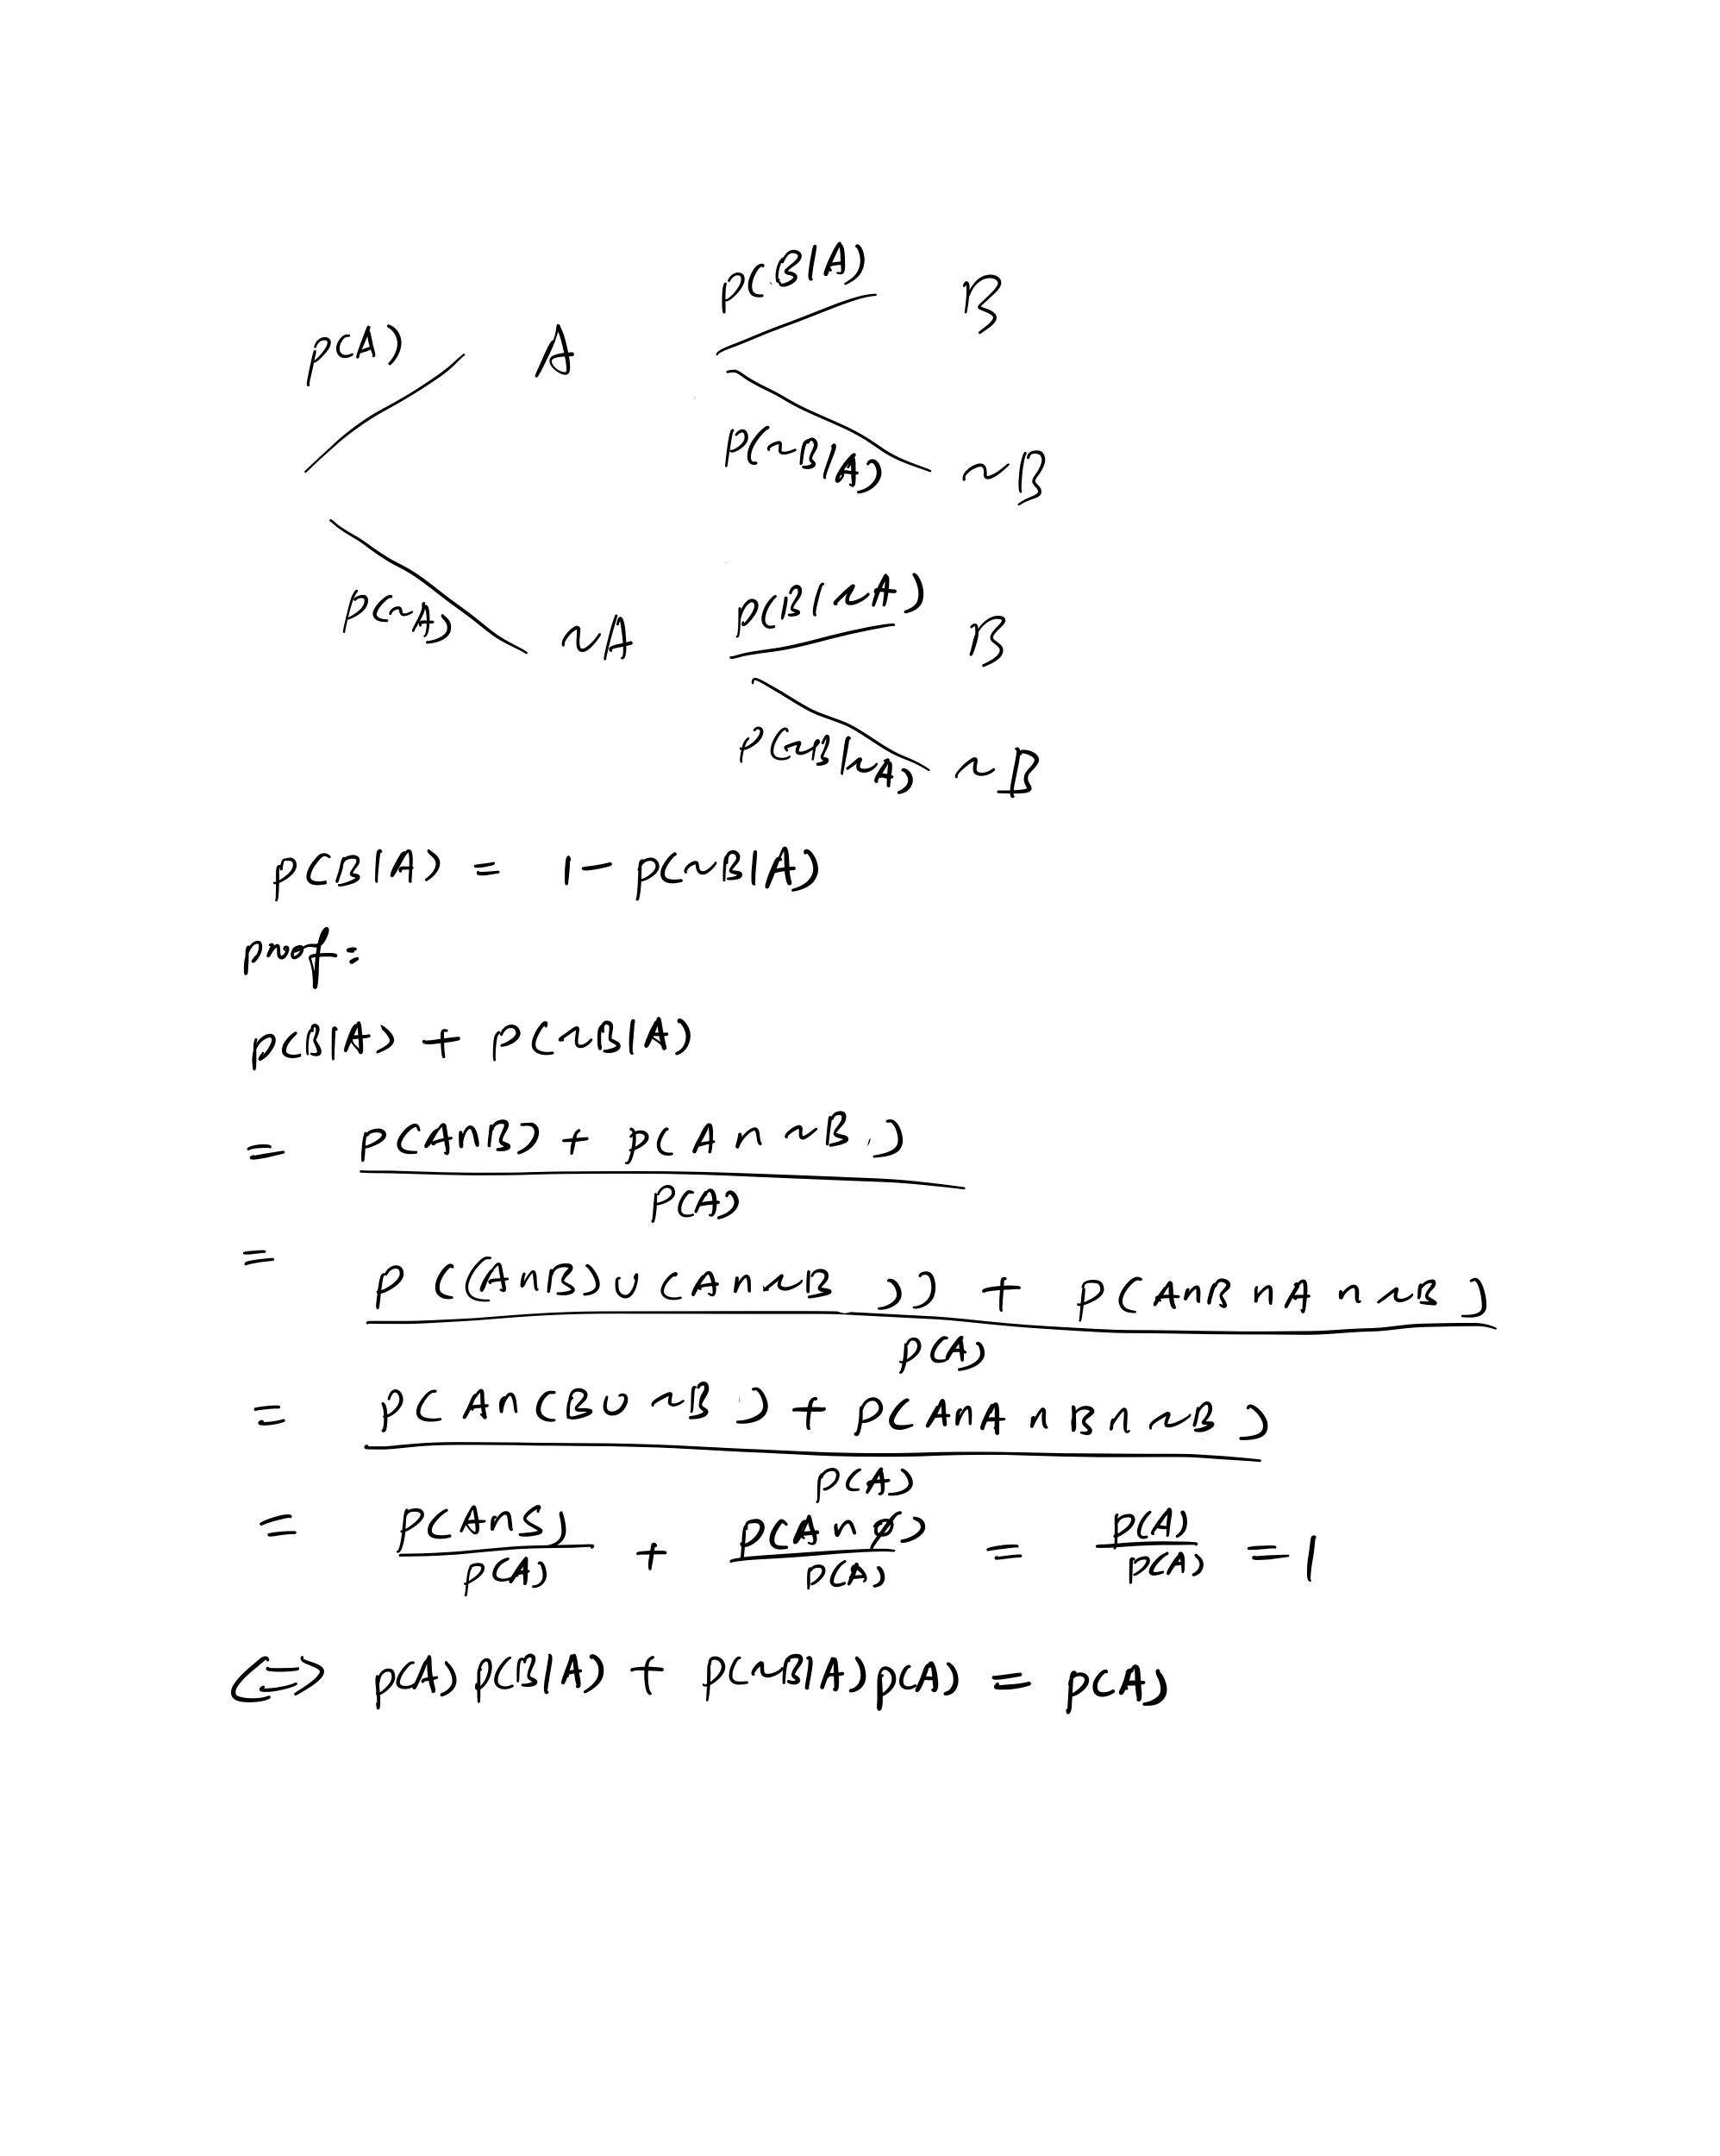 p(B|A) B
p(A) A
p(~B|A) ~B
p(B|~A) B
p(~A) ~A
p(~B|~A) ~B
p(B|A) = 1 - p(~B|A)
proof:
p(B|A) + p(~B|A)
= p(A∩B) + p(A∩~B)
p(A)
= p((A∩B)∪(A∩~B)) + p(A∩B∩A∩~B)
p(A)
= p(A∩(B∪~B) + p(A∩A∩B∩~B)
p(A)
= p(A∩S) + p(A∩∅) = p(A) = 1
p(A) p(A) p(A)
<=> p(A)p(B|A) + p(~B|A)p(A) = p(A)